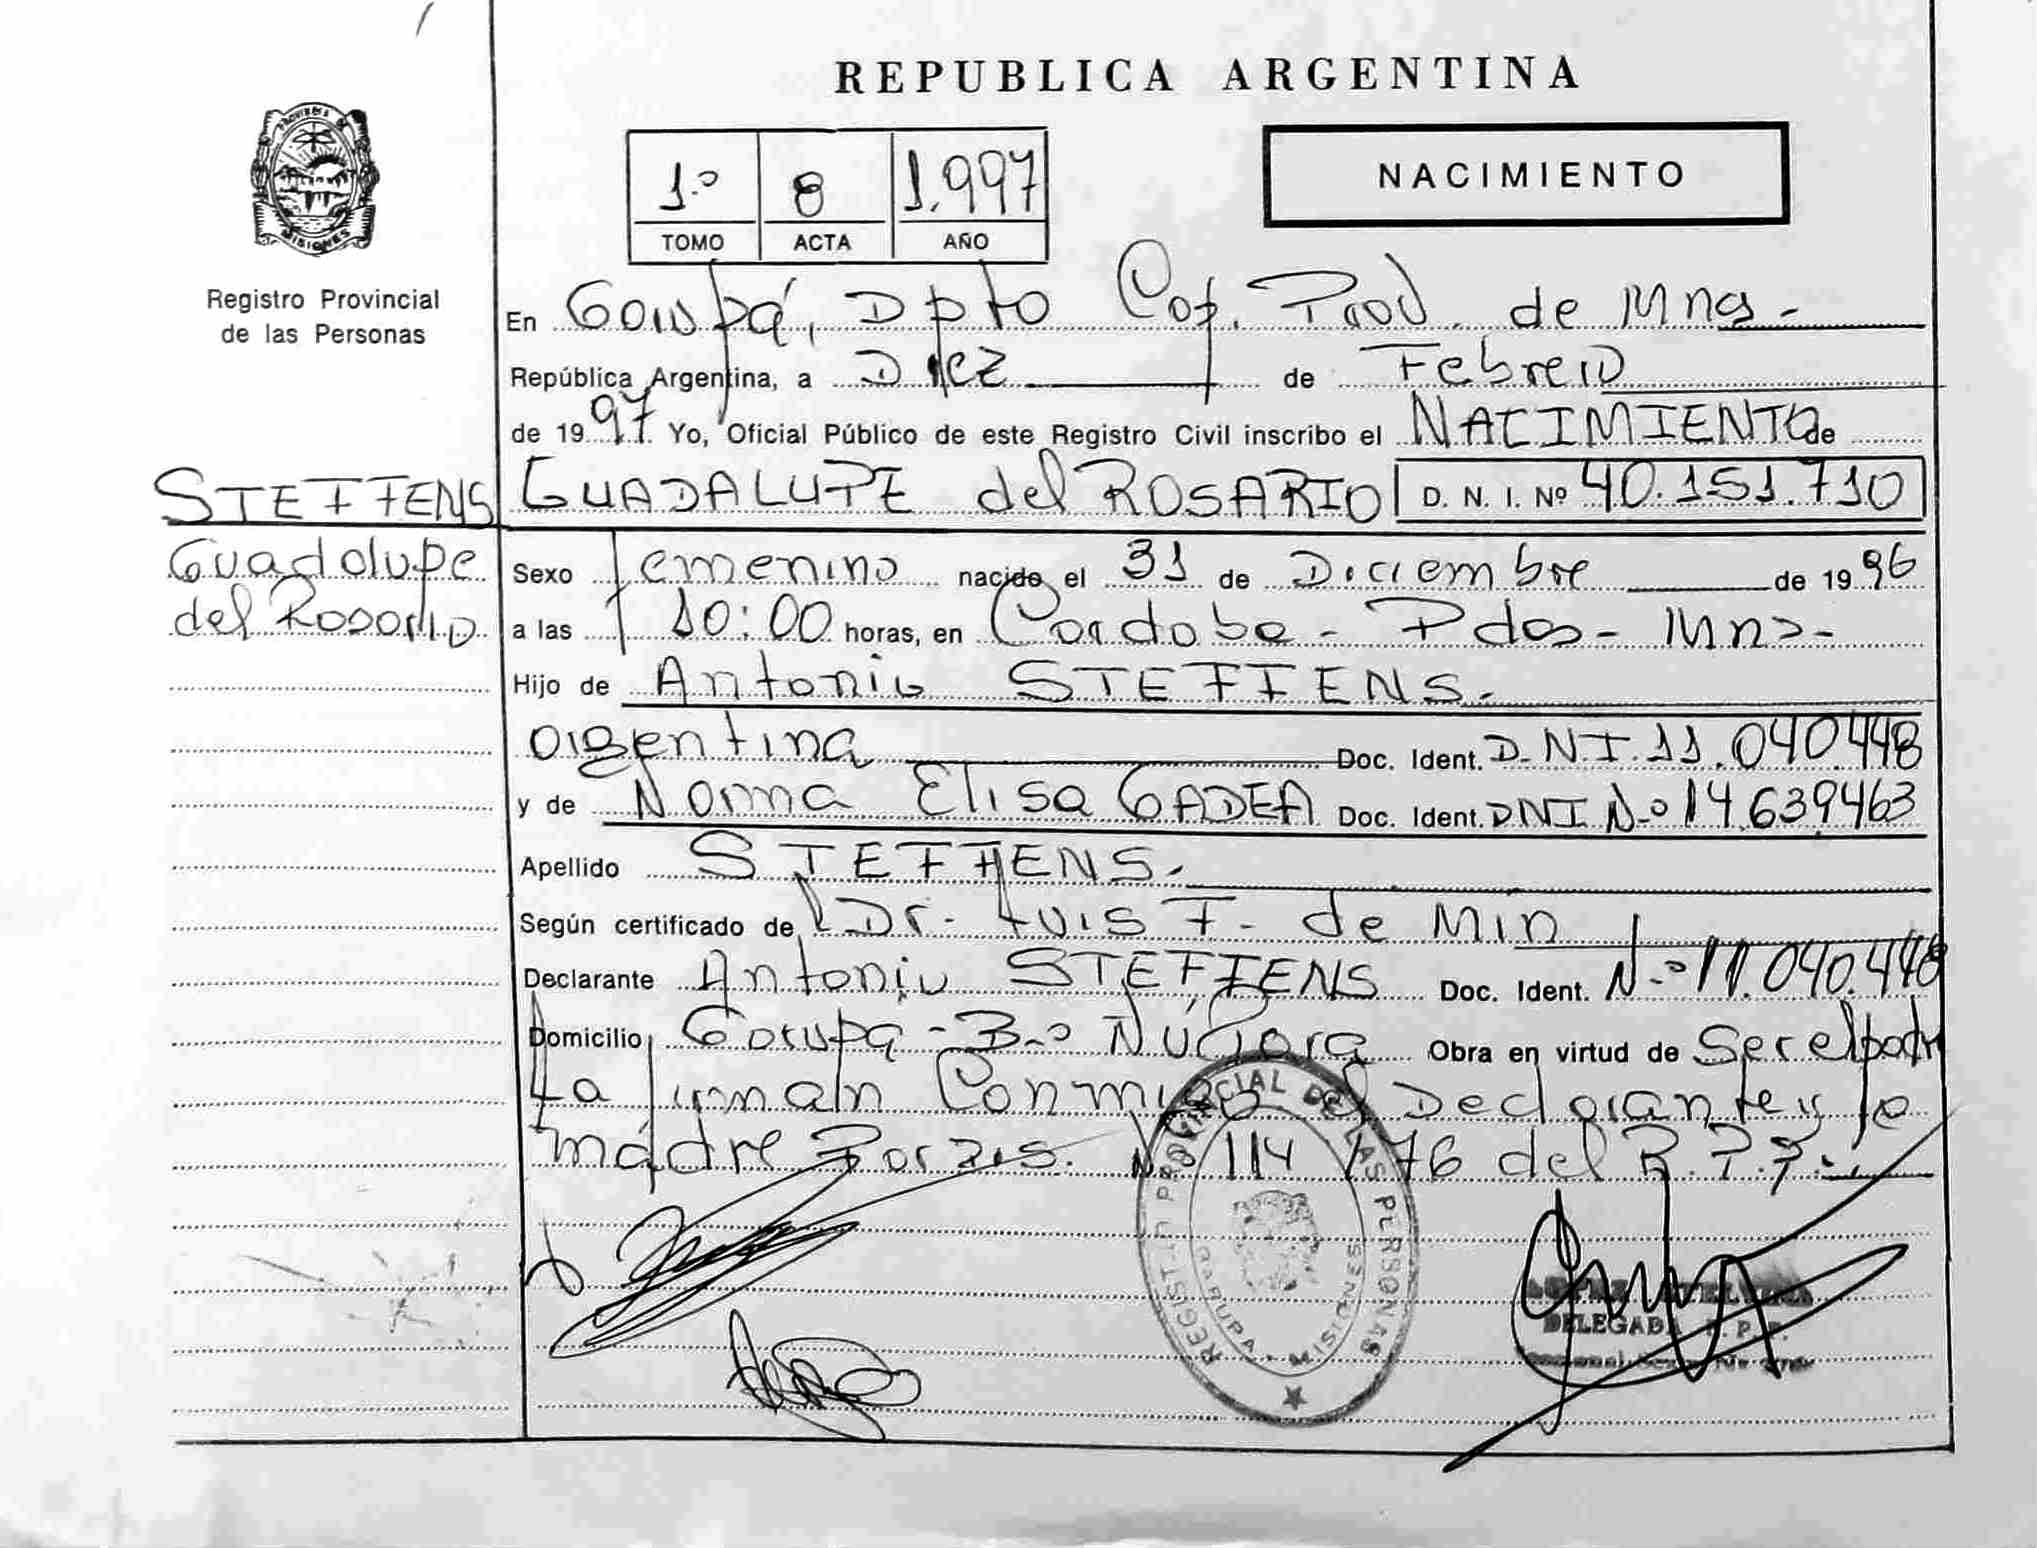 REPUBLICA ARGENTINA
PROVINCIA DE
MISIONES
Registro Provincial
de las Personas
1.º 8 1.997
TOMO ACTA AÑO
NACIMIENTO
En Garupá, Dpto Cap. Prov. de Mnes.-
República Argentina, a Diez de Febrero
de 1997. Yo, Oficial Público de este Registro Civil inscribo el NACIMIENTO de
STEFFENS
GUADALUPE del ROSARIO D. N. I. Nº 40.151.710
Guadalupe
del Rosario
Sexo femenino nacido el 31 de Diciembre de 1996
a las 10:00 horas, en Cordoba - Pdas - Mns-
Hijo de Antonio STEFFENS.-
argentina Doc. Ident. D.N.I. 11.040.448
y de Norma Elisa GADEA Doc. Ident. DNI Nº 14.639463
Apellido STEFFENS.-
Según certificado de Dr. Luis F. de Min
Declarante Antonio STEFFENS Doc. Ident. Nº 11.040.448
Domicilio Garupa - Bº Ñú Porá Obra en virtud de Ser el padre
La firman Conmigo el Declarante y la
madre Por Dis. Nº 114 / 76 del R.P.P.
REGISTRO PROVINCIAL DE LAS PERSONAS
GARUPA - MISIONES
DELEGADA R. P. P.